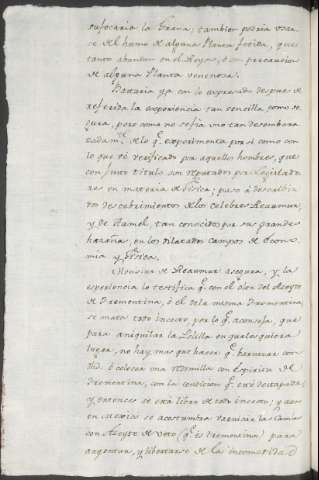 sufocaria la Grana; tambien podria usar-
se del humo de alguna Planta fetida, que
tanto abundan en el Reyno, ó con precaucion
de alguna Planta venenosa.
Bastaria ya con lo expresado despues de
referida la experiencia tan sencilla como se
gura, pero como no se fia uno tan desembara
zadam.te de lo q.e experimenta por sí como con
lo que vé verificado por aquellos hombres, que
con justo titulo son reputados por Legislado
res en materia de Fisica; paso á describir
los descubrimientos de los celebres Reaumur,
y du Hamel, tan conocidos por sus grandes
hazañas, en los dilatados campos de Econo-
mia y Fisica.
Monsieur de Reaumur asegura, y la
experiencia lo testifica q.e con el olor del Aceyte
de Trementina, ó el de la misma Trementina
se mata todo insecto, por lo q.e aconseja, que
para aniquilar la Polilla en qualquiera
lugar, no hay mas que hacer q.e
ó colocar una Redomilla con Espiritu de
Trementina, con la condicion q.e esté destapada;
y entonces se está libre de este insecto; y aun
en Mexico se acostumbra barnizar las Camas
con Aceyte de Veto (q.e es trementina) para
ahuyentar, y libertarse de la incomodidad